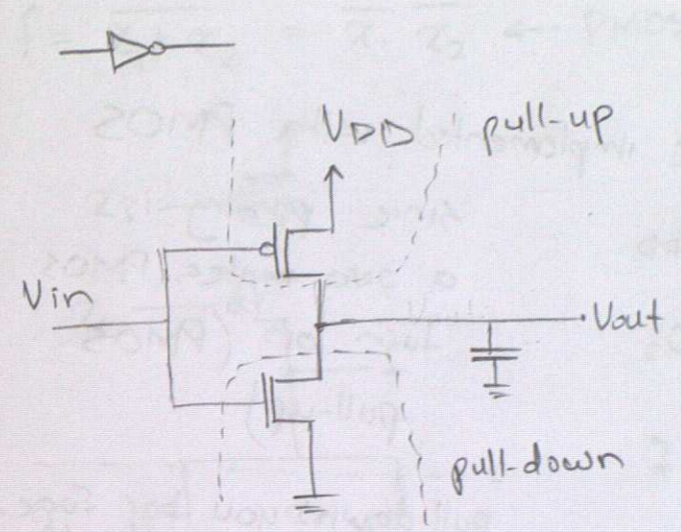 VDD
pull-up
Vin
Vout
pull-down